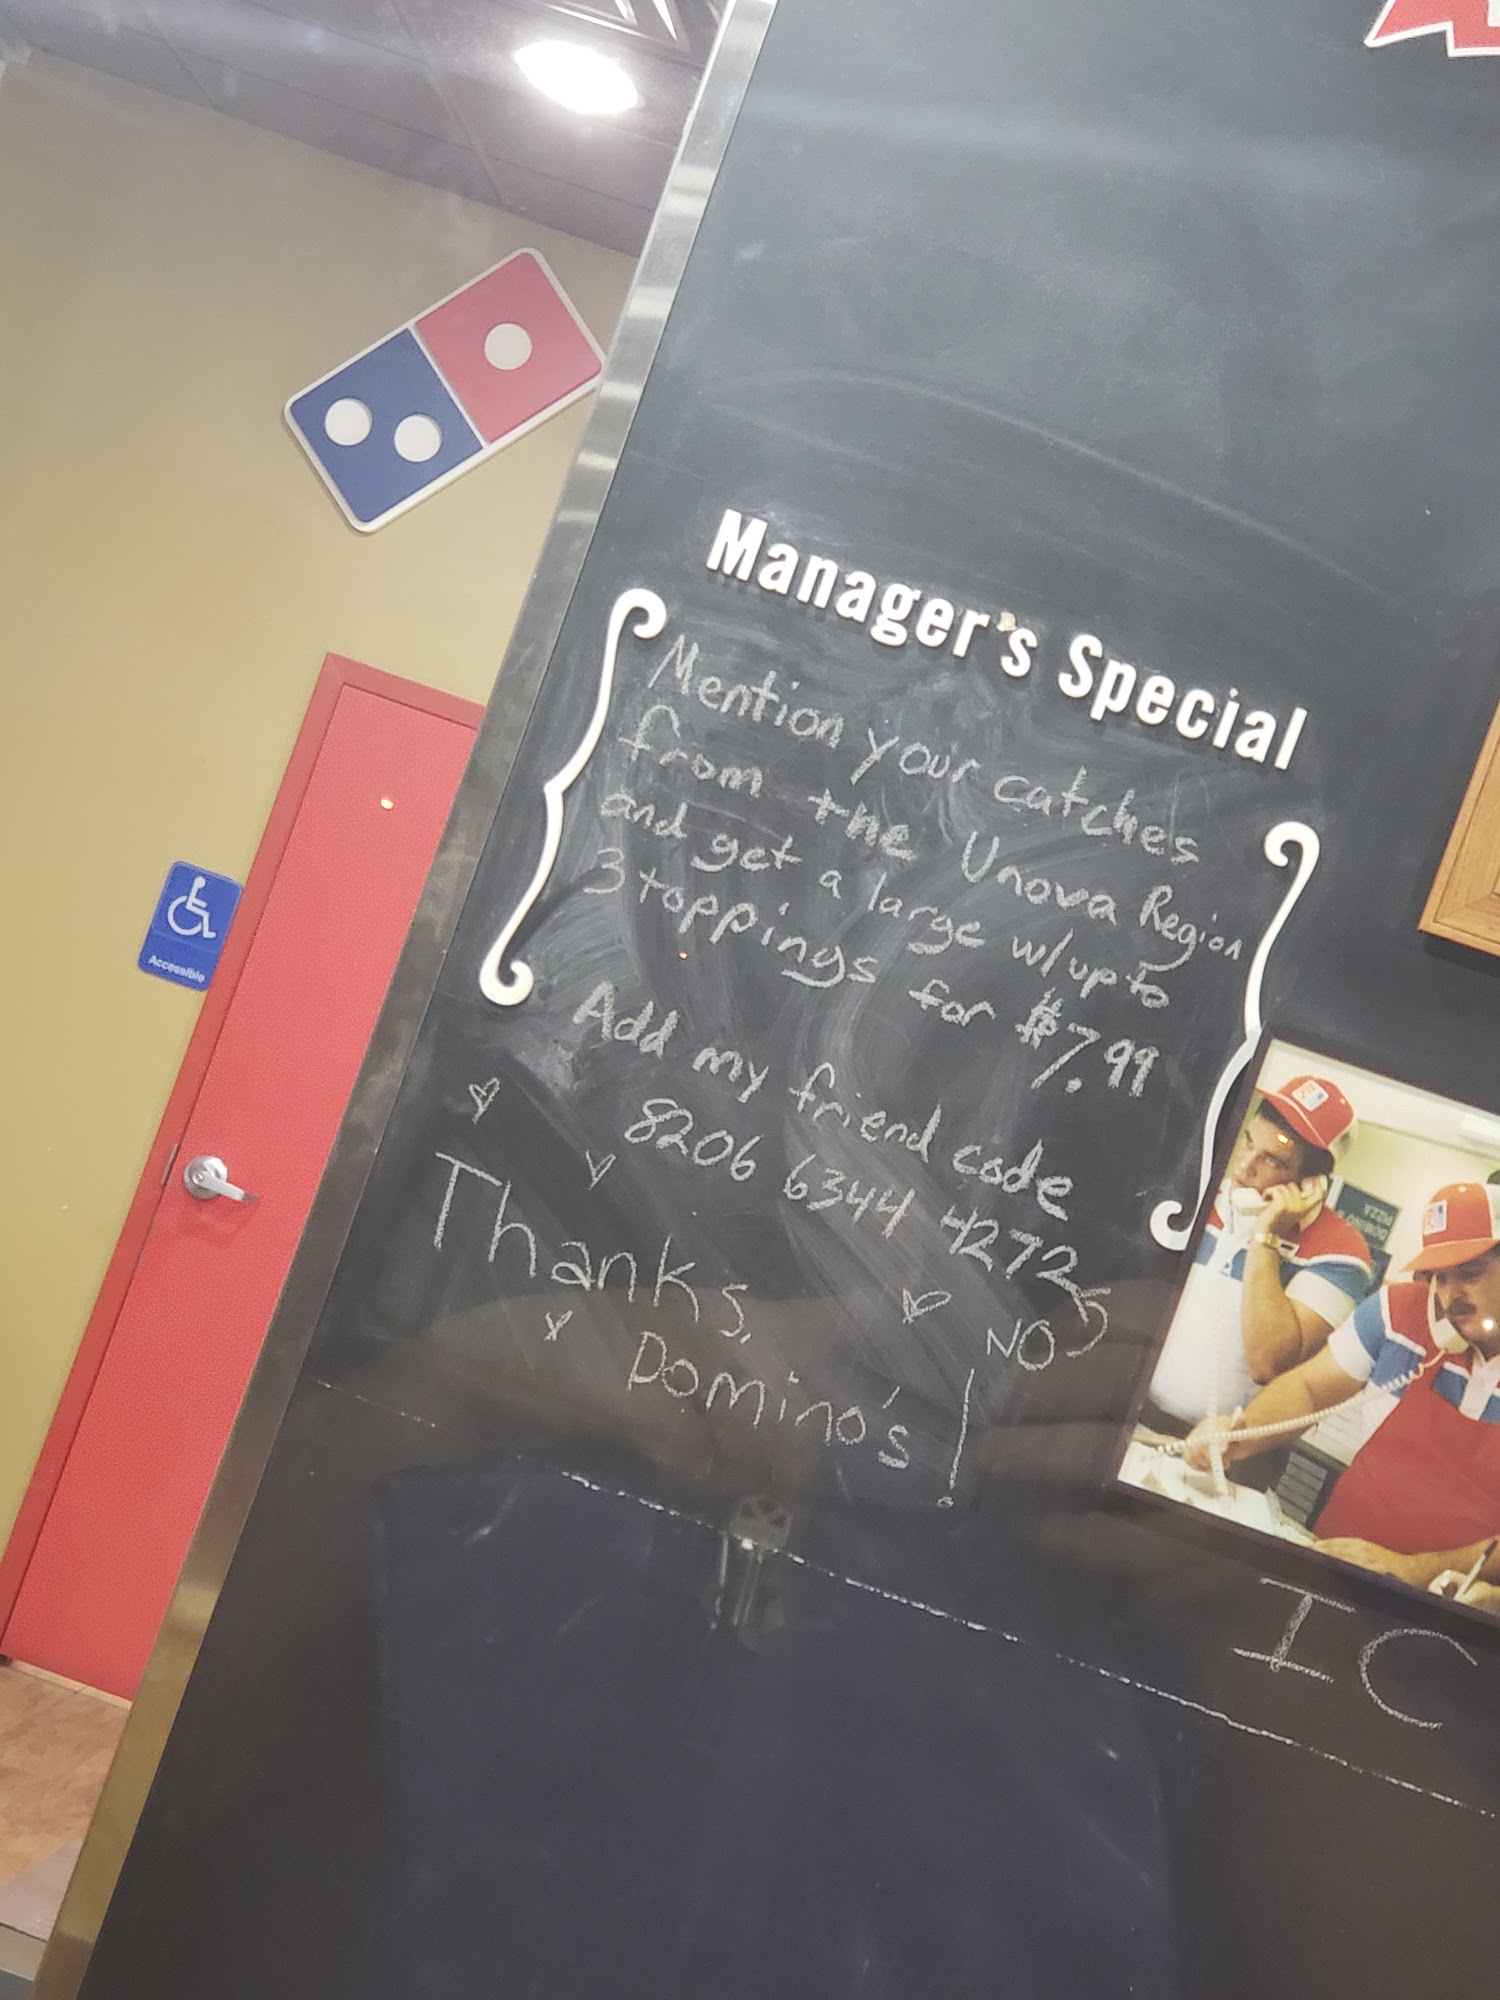 Manager's Special
Mention your catches
from the Unova Region
and get a large w/up to
3 toppings for $7.99
Add my friend code
8206 6344 4272
NO
Thanks,
Domino's!
Accessible
IC